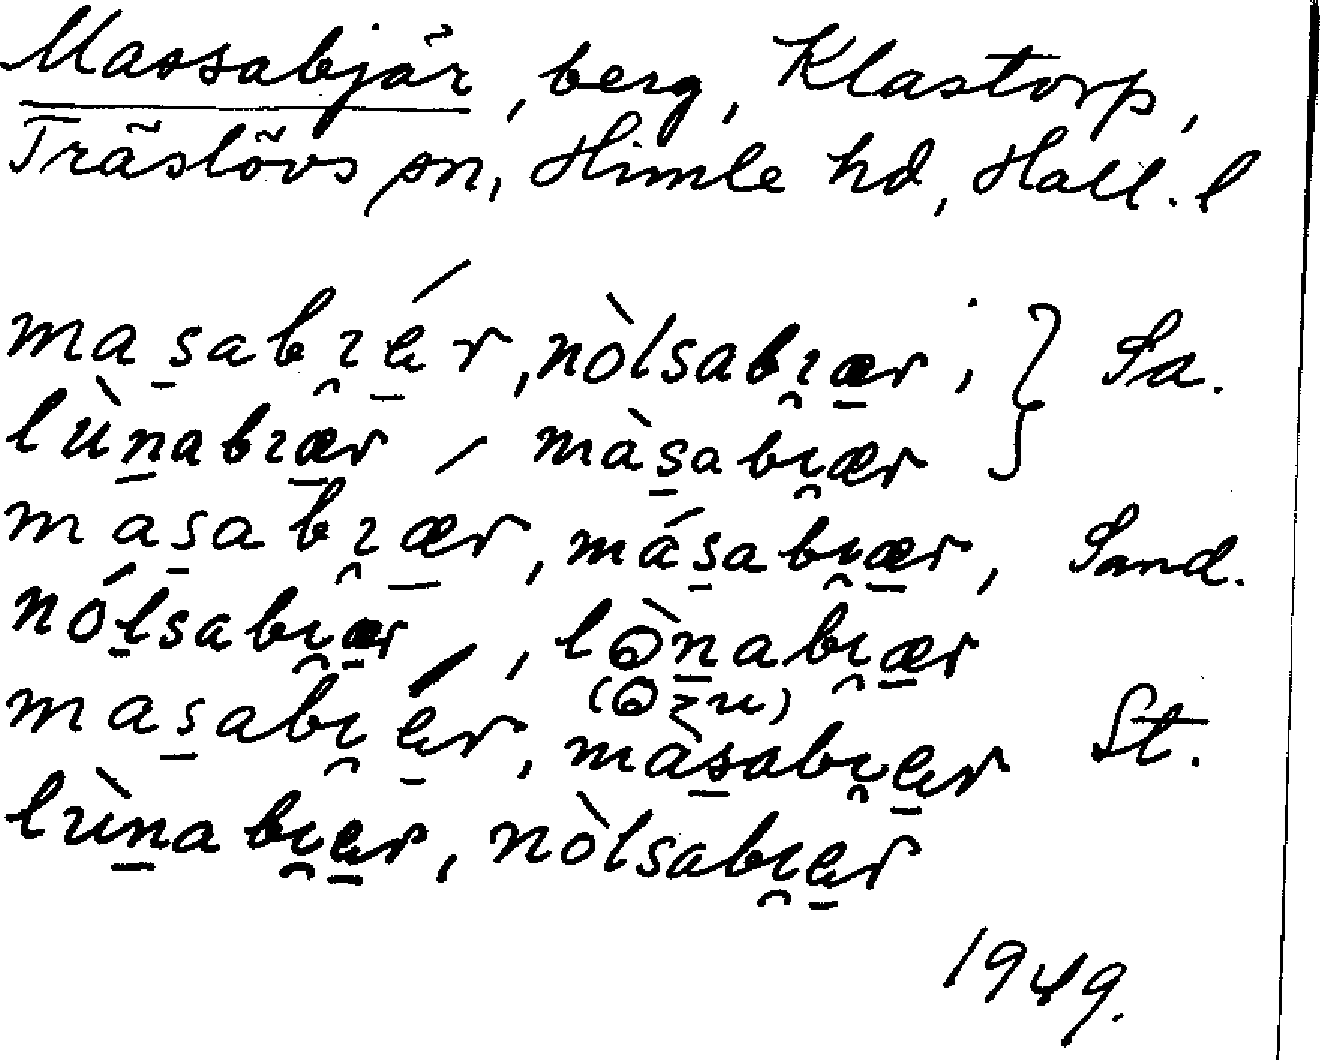 Massabjär, berg, Klastorp,
Träslövs sn, Himle hd, Hall. l
mas̱abı̯ǽ̱r, nòlsabı̯æ̱r, } Sa.
lùṉabıæ̱r, màs̱abı̯ær
mas̱abı̯æ̱r, más̱abı̯æ̱r, Sand.
nóḻsabı̯æ̱r, lꝍ̀ṉabı̯æ̱r
mas̱abı̯æ̱r, màs̱abı̯æ̱r St.
lùṉabı̯æ̱r, nòlsabı̯æ̱r
1949.